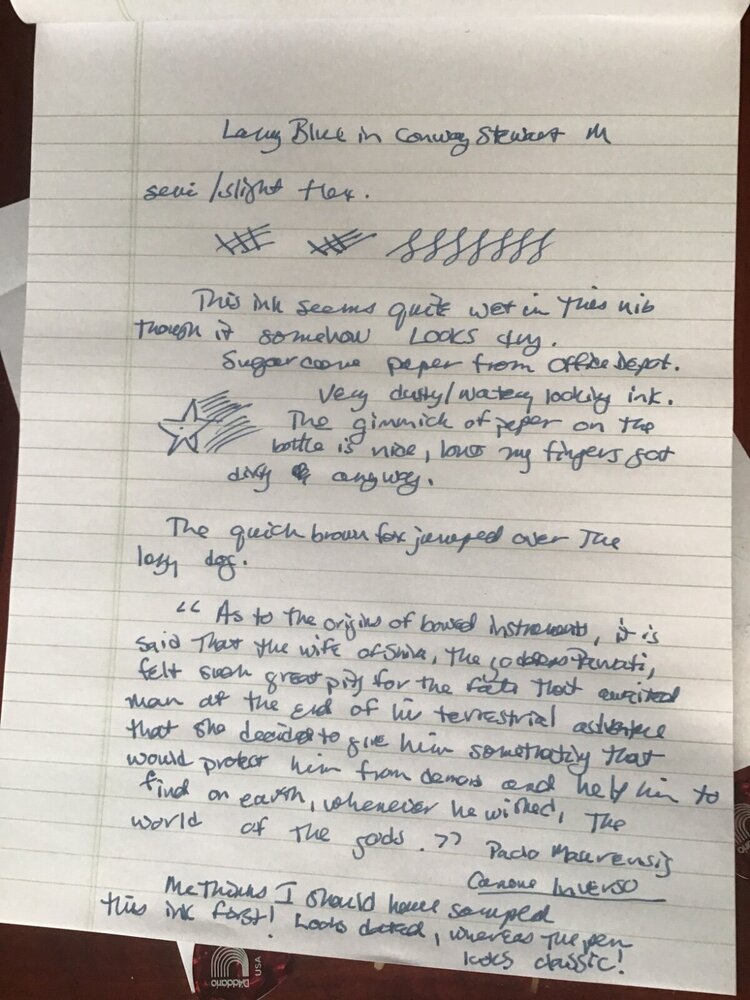 Lamy Blue in Conway Stewart M
semi/slight flex.
This ink seems quite wet in this nib
though it somehow looks dry.
Sugarcane paper from Office Depot.
Very dusty/watery looking ink.
The gimmick of paper on the
bottle is nice, but my fingers got
dirty anyway.
The quick brown fox jumped over the
lazy dog.
"As to the origins of bowed instruments, it is
said that the wife of Shiva, the goddess Parvati,
felt such great pity for the fate that awaited
man at the end of his terrestrial adventure
that she decided to give him something that
would protect him from demons and help him to
find on earth, whenever he wished, the
world of the gods.>> Paolo Maurensig
Canone Inverso
Methinks I should have sampled
this ink first! Looks dated, whereas the pen
looks classic!
D'Addario
USA